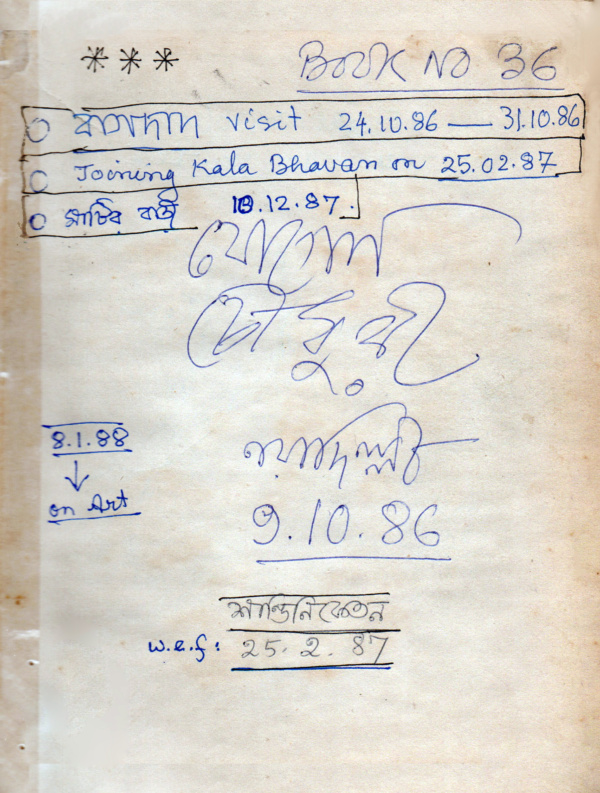 *** BOOK NO 36
বাগদাদ visit 24.10.86 — 31.10.86
Joining Kala Bhavan on 25.02.87
মাটির বাড়ী 10.12.87.
যোগেন
চৌধুরী
নয়াদিল্লি
9.10.86
8.1.88
on Art
শান্তিনিকেতন
w.e.f: 25.2.87